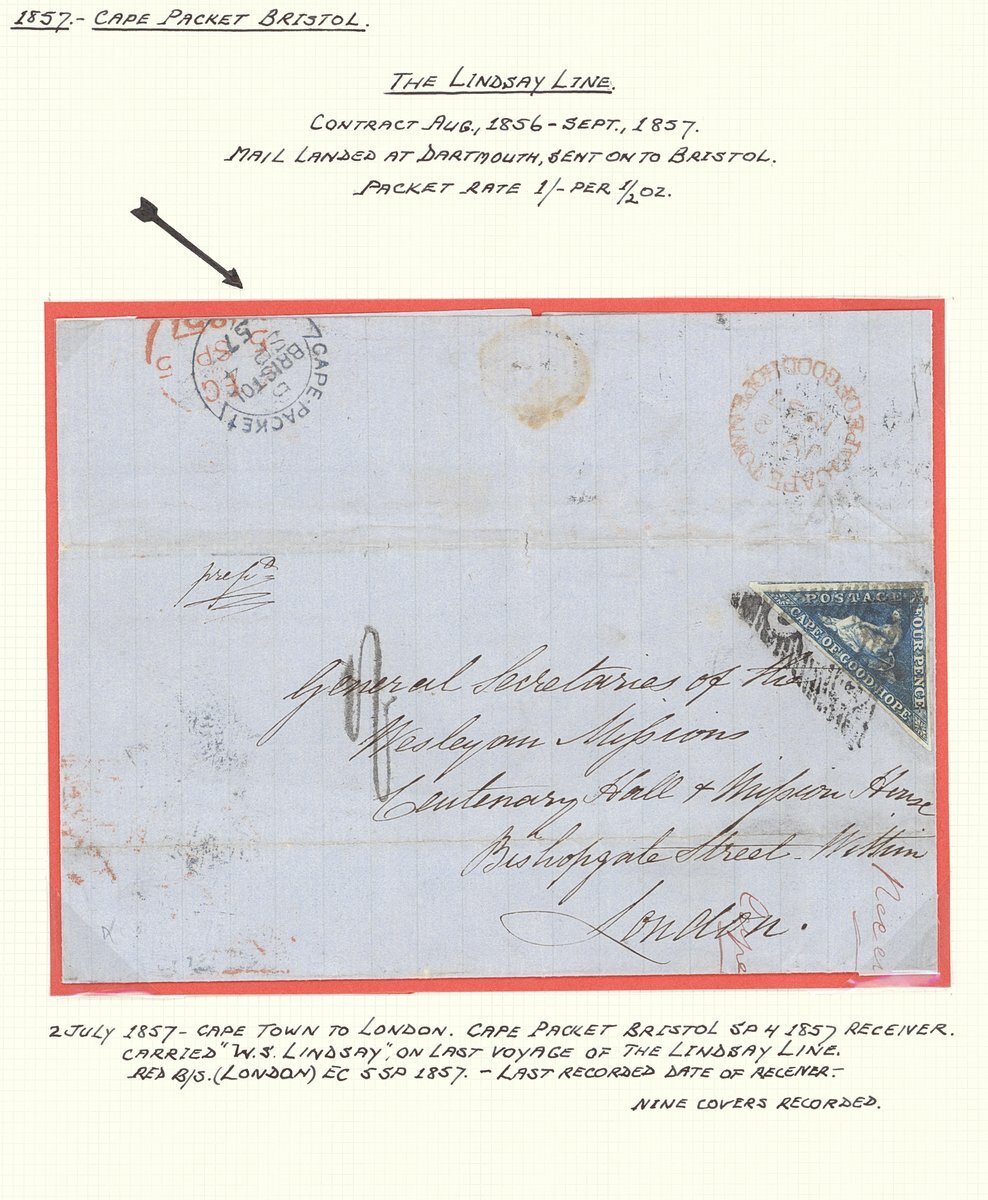 1857.- CAPE PACKET BRISTOL.
THE LINDSAY LINE.
CONTRACT AUG., 1856 - SEPT., 1857.
MAIL LANDED AT DARTMOUTH, SENT ON TO BRISTOL.
PACKET RATE 1/- PER 1/2 OZ.
1857
5
SP
EC
CAPE PACKET
BRISTOL
SP 4
57
CAPE TOWN
CAPE OF GOOD HOPE
prepd
POSTAGE
FOUR PENCE
CAPE OF GOOD HOPE
General Secretaries of the
Wesleyan Missions
Centenary Hall & Mission House
Bishopgate Street - Within
London.
2 JULY 1857 - CAPE TOWN TO LONDON. CAPE PACKET BRISTOL SP 4 1857 RECEIVER.
CARRIED "W.S. LINDSAY", ON LAST VOYAGE OF THE LINDSAY LINE.
RED B/S. (LONDON) EC 5 SP 1857. - LAST RECORDED DATE OF RECEIVER -
NINE COVERS RECORDED.